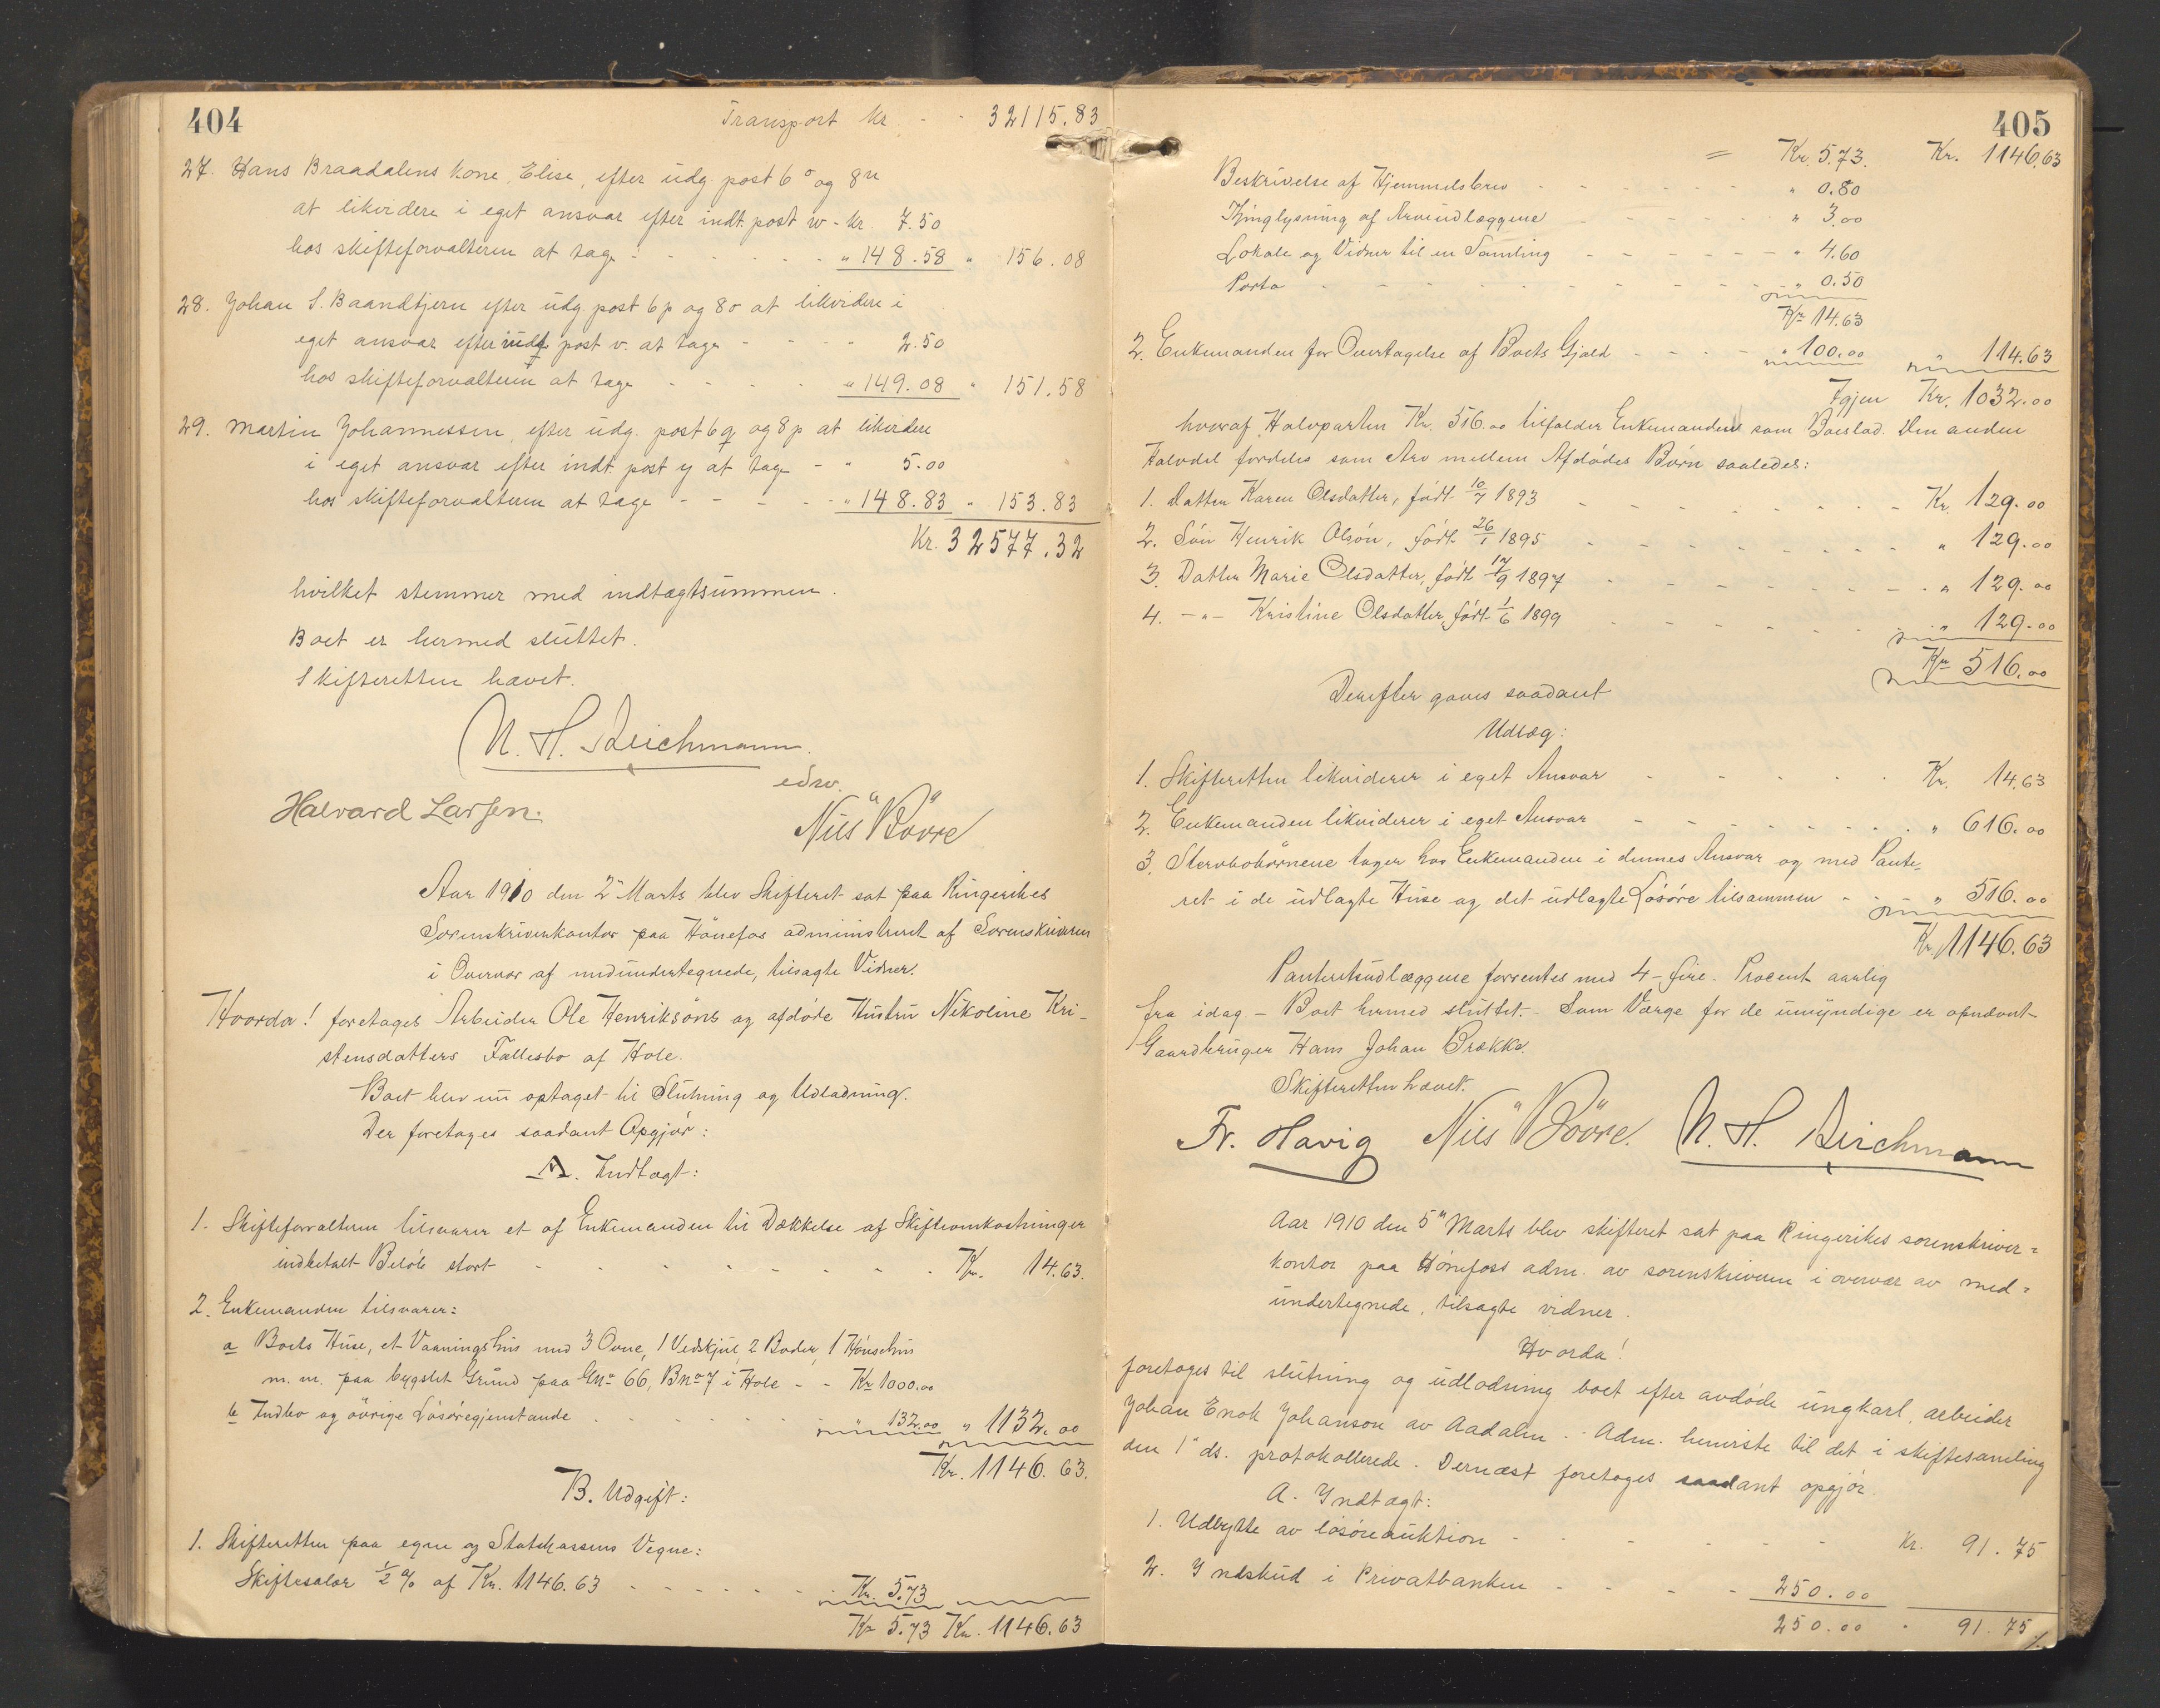 404
Transport Kr. - - 32115.83
27. Hans Braadalens kone, Elise, efter udg. post 6 o og 8 n
at likvidere i eget ansvar efter indt. post w - Kr. 7.50
hos skifteforvalteren at tage - - - - - - " 148.58 " 156.08
28. Johan S. Baandtjern efter udg post 6 p og 8 o at likvidere i
eget ansvar efter indt. post v. at tage - - - " 2.50
hos skifteforvalteren at tage - - - - " 149.08 " 151.58
29. Martin Johannessen, efter udg. post 6 q og 8 p at likvidere
i eget ansvar efter indt. post y at tage - " 5.00
hos skifteforvalteren at tage - - - - " 148.83 " 153.83
Kr. 32577.32
hvilket stemmer med indtægtsummen.
Boet er hermed sluttet.
Skifteretten hævet.
N. H. Reichmann.
edsv.
Halvard Larsen.
Nils Bövre
Aar 1910 den 2" Marts blev Skifteret sat paa Ringerikes
Sorenskriverkontor paa Hönefos administreret af Sorenskriveren
i Overvær af medundertegnede, tilsagte Vidner.
Hvorda! foretages Arbeider Ole Henriksöns og afdöde Hustru Nikoline Kri-
stensdatters Fællesbo af Hole.
Boet blev nu optaget til Slutning og Udlodning.
Der foretages saadant Opgjör:
A. Indtægt:
1. Skifteforvalteren tilsvarer et af Enkemanden til Dækkelse af Skifteomkostninger
indbetalt Belöb stort - - - - - - - - Kr. 14.63.
2. Enkemanden tilsvarer:
a Boets Huse, et Vaaningshus med 3 Ovne, 1 Vedskjul, 2 Boder, 1 Hönsehus
m. m. paa bygslet Grund paa Gno 66, Bno 7 i Hole - - Kr 1000.00
b Indbo og övrige Lösöregjenstande - - - - - - - " 132.00 " 1132.00
Kr. 1146.63.
B. Udgift:
1. Skifteretten paa egne og Statskassens Vegne:
Skiftesalær ½ % af Kr. 1146.63 - - - - - - Kr. 5.73
Kr 5.73 Kr. 1146.63
405
= Kr. 5.73. Kr. 1146.63
Beskrivelse af Hjemmelsbrev - - - - - - - " 0.80
Thinglysning af Arveudlæggene - - - - - - " 3.00
Lokale og Vidner til en Samling - - - - - - " 4.60
Porto - - - - - - - - - - - " 0.50
Kr 14.63
2. Enkemanden for Overtagelse af Boets Gjæld - - - - " 100.00 " 114.63
Igjen Kr. 1032.00
hvoraf Halvparten Kr. 516.00 tilfalder Enkemanden som Boeslod. Den anden
Halvdel fordeles som Arv mellem Afdödes Börn saaledes:
1. Datter Karen Olsdatter, födt 10/7 1893 - - - - - - - - Kr. 129.00
2. Sön Henrik Olsön, födt 26/1 1895 - - - - - - - - " 129.00
3. Datter Marie Olsdatter, födt 17/9 1897 - - - - - - - - " 129.00
4. -"- Kristine Olsdatter, födt 1/6 1899 - - - - - - - " 129.00
Kr 516.00
Derefter gaves saadant
Udlæg:
1. Skifteretten likviderer i eget Ansvar - - - - - - Kr. 14.63
2. Enkemanden likviderer i eget Ansvar - - - - - - - - " 616.00
3. Stervbobörnene tager hos Enkemanden i dennes Ansvar og med Pante-
ret i de udlagte Huse og det udlagte Lösöre tilsammen - - - " 516.00
Kr. 1146.63
Panteretsudlæggene forrentes med 4 - fire - Procent aarlig
fra idag. - Boet hermed sluttet. - Som Værge for de umyndige er opnævnt
Gaardbruger Hans Johan Brække.
Skifteretten hævet.
Fr. Havig Nils Bövre. N. H. Reichmann
Aar 1910 den 5" Marts blev skifteret sat paa Ringerikes sorenskriver=
kontor paa Hönefoss adm. av sorenskriveren i overvær av med=
undertegnede, tilsagte vidner.
Hvorda!
foretoges til slutning og udlodning boet efter avdöde ungkarl, arbeider
Johan Enok Johanson av Aadalen. - Adm. henviste til det i skiftesamling
den 1" ds. protokollerede. Dernæst foretoges saadant opgjör.
A. Indtægt:
1. Udbytte av lösöreauktion - - - - - - Kr. 91.75
2. Indskud i Privatbanken - - - - 250.00
250.00 " 91.75 ./.